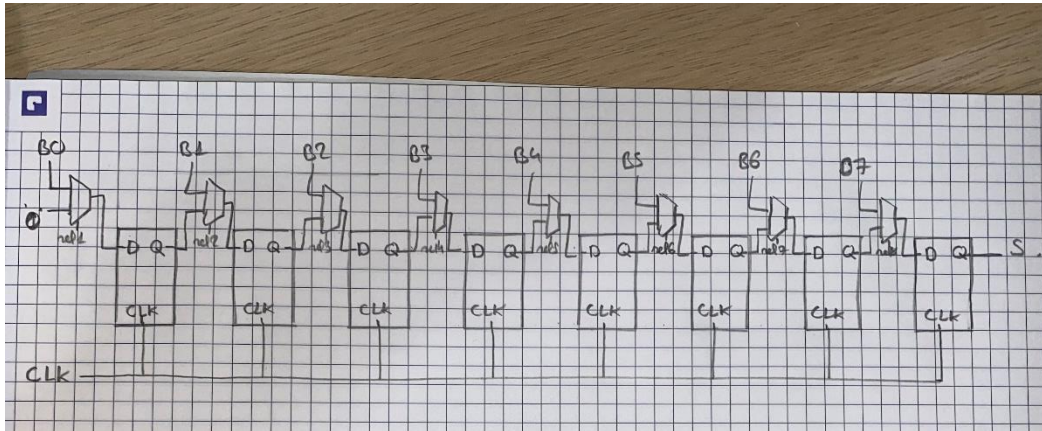 B0 B1 B2 B3 B4 B5 B6 B7
'0'
mel1 mel2 mel3 mel4 mel5 mel6 mel7
D Q D Q D Q D Q D Q D Q D Q D Q S
CLK CLK CLK CLK CLK CLK CLK CLK
CLK